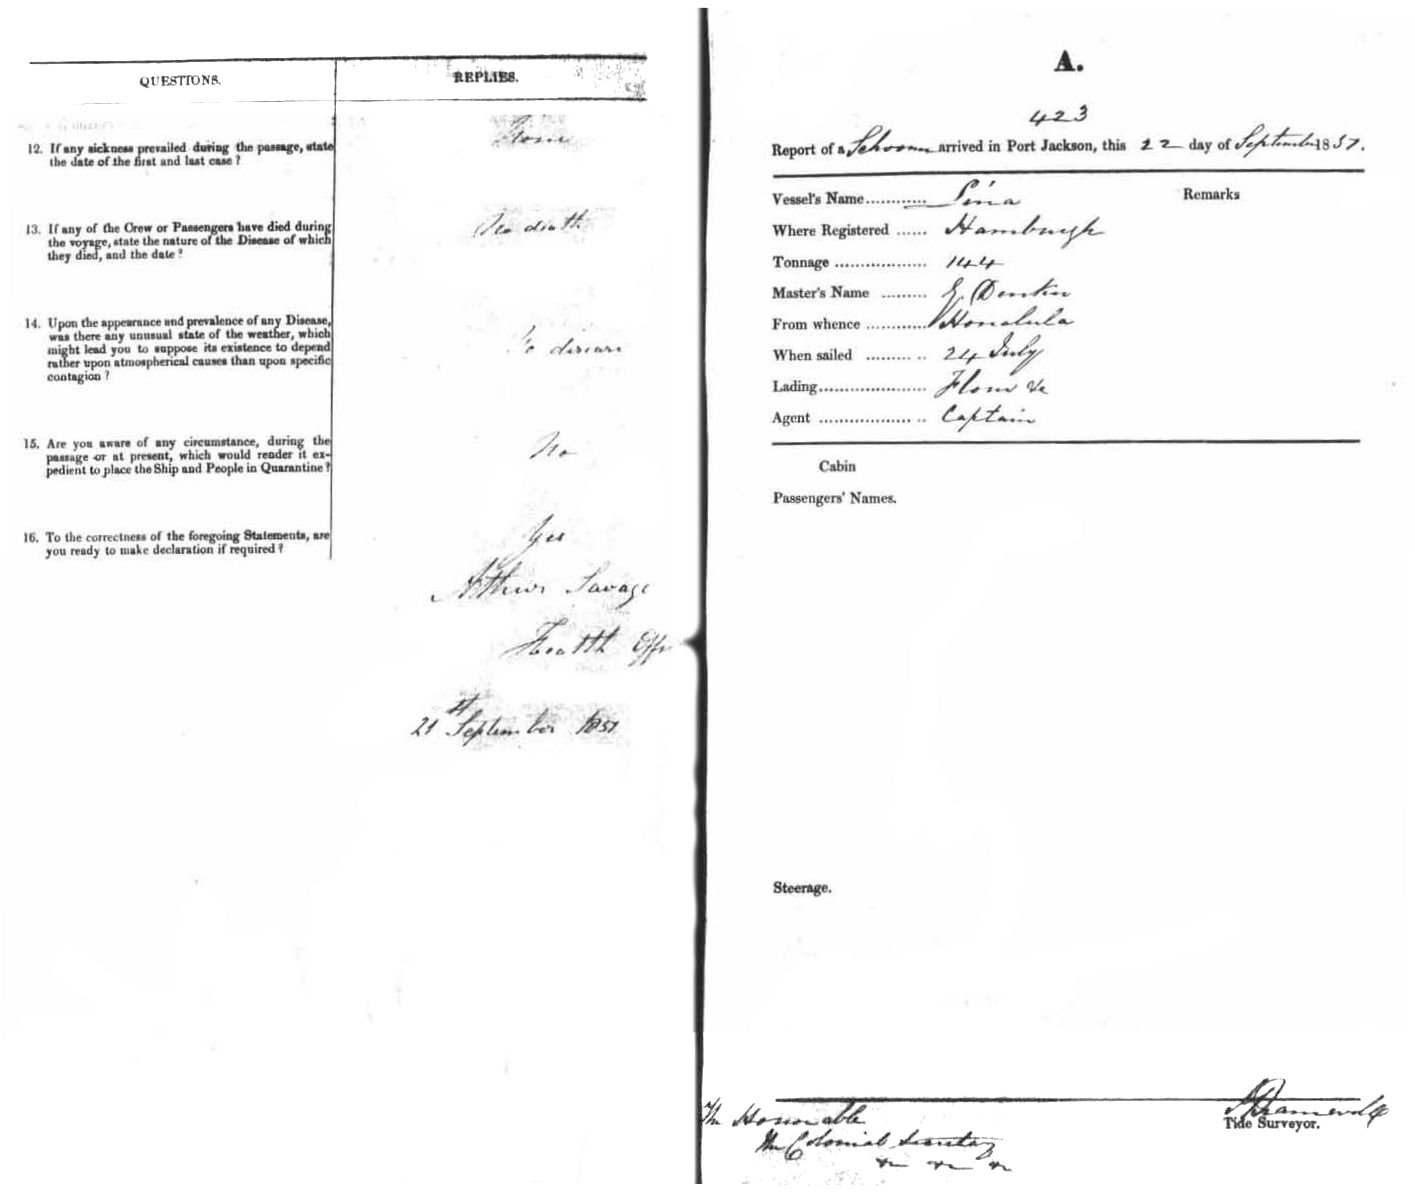 QUESTIONS.
REPLIES.
12. If any sickness prevailed during the passage, state
the date of the first and last case ?
None
13. If any of the Crew or Passengers have died during
the voyage, state the nature of the Disease of which
they died, and the date ?
No death
14. Upon the appearance and prevalence of any Disease,
was there any unusual state of the weather, which
might lead you to suppose its existence to depend
rather upon atmospherical causes than upon specific
contagion ?
No disease
15. Are you aware of any circumstance, during the
passage or at present, which would render it ex-
pedient to place the Ship and People in Quarantine ?
No
16. To the correctness of the foregoing Statements, are
you ready to make declaration if required ?
Yes
Arthur Savage
Health Offr
21st September 1857
A.
423
Report of a Schooner arrived in Port Jackson, this 22 day of September 1857.
Vessel's Name............ Sina
Remarks
Where Registered ...... Hamburgh
Tonnage .................. 144
Master's Name .........
From whence ............ Honolula
When sailed ........... 24 July
Lading..................... Flour &c
Agent ..................... Captain
Cabin
Passengers' Names.
Steerage.
Tide Surveyor.
The Honorable
The Colonial Secretary
&c &c &c